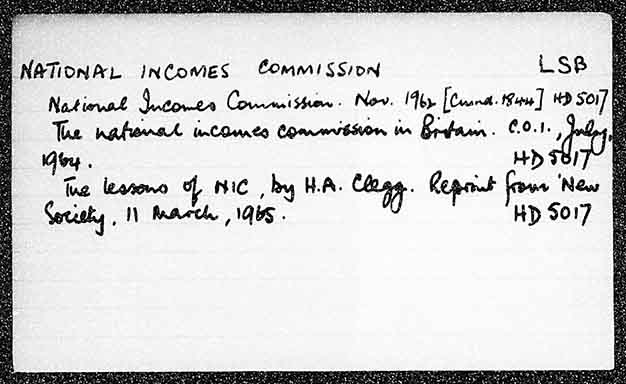 NATIONAL INCOMES COMMISSION LSB
National Incomes Commission. Nov. 1962 [Cmnd. 1844] HD 5017
The national incomes commission in Britain. C.O.I., July,
1964. HD 5017
The lessons of NIC, by H.A. Clegg. Reprint from 'New
Society, 11 March, 1965. HD 5017